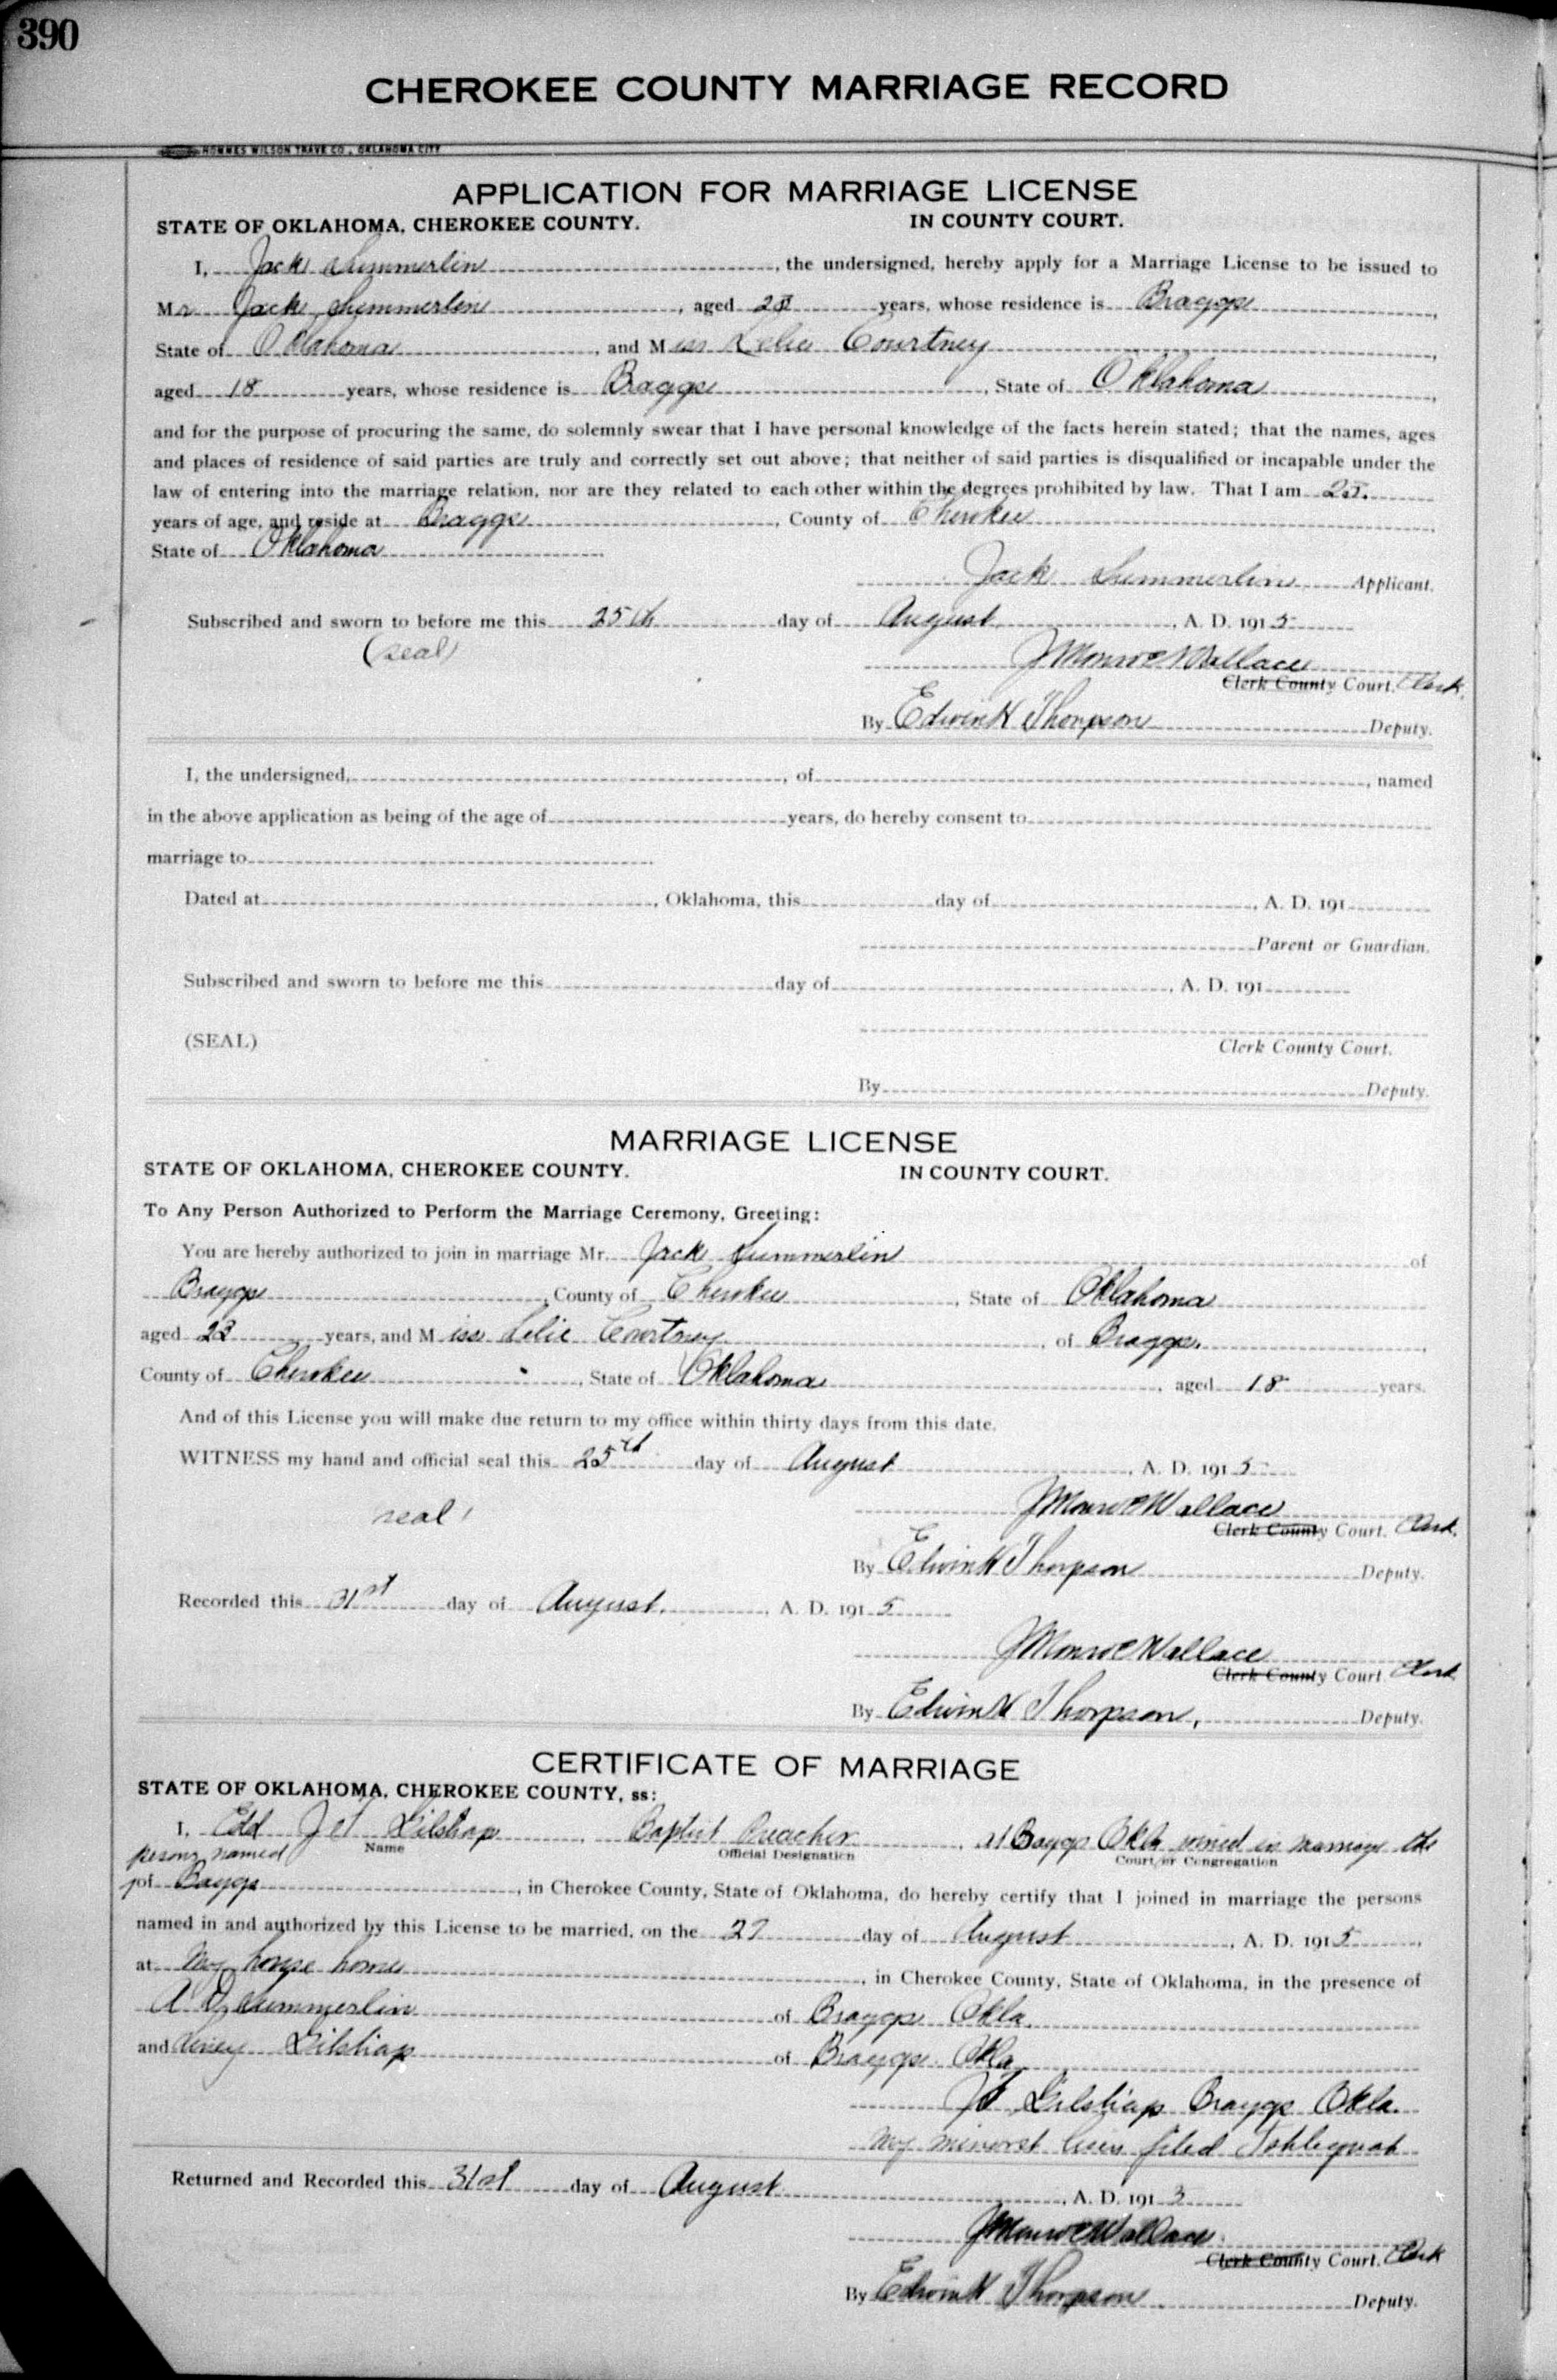 390
CHEROKEE COUNTY MARRIAGE RECORD
HOMMES WILSON TRAVE CO., OKLAHOMA CITY
APPLICATION FOR MARRIAGE LICENSE
STATE OF OKLAHOMA, CHEROKEE COUNTY. IN COUNTY COURT.
I, Jack Summerlin, the undersigned, hereby apply for a Marriage License to be issued to
Mr Jack Summerlin, aged years, whose residence is Braggs,
State of Oklahoma, and Miss Lelie Courtney,
aged 18 years, whose residence is Braggs, State of Oklahoma,
and for the purpose of procuring the same, do solemnly swear that I have personal knowledge of the facts herein stated; that the names, ages
and places of residence of said parties are truly and correctly set out above; that neither of said parties is disqualified or incapable under the
law of entering into the marriage relation, nor are they related to each other within the degrees prohibited by law. That I am
years of age, and reside at Braggs, County of Cherokee,
State of Oklahoma
Jack Summerlin Applicant.
Subscribed and sworn to before me this 25th day of August, A. D. 1915
(seal)
J Monroe Wallace
Clerk County Court. Clerk.
By Edwin H Thompson Deputy.
I, the undersigned, , of , named
in the above application as being of the age of years, do hereby consent to
marriage to
Dated at , Oklahoma, this day of , A. D. 191
Parent or Guardian.
Subscribed and sworn to before me this day of , A. D. 191
(SEAL)
Clerk County Court.
By Deputy.
MARRIAGE LICENSE
STATE OF OKLAHOMA, CHEROKEE COUNTY. IN COUNTY COURT.
To Any Person Authorized to Perform the Marriage Ceremony, Greeting:
You are hereby authorized to join in marriage Mr. Jack Summerlin of
Braggs, County of Cherokee, State of Oklahoma
aged 23 years, and Miss Lelie Courtney, of Braggs.
County of Cherokee, State of Oklahoma, aged 18 years.
And of this License you will make due return to my office within thirty days from this date.
WITNESS my hand and official seal this 25th day of August, A. D. 1915
seal
J Monroe Wallace
Clerk County Court. Clerk.
By Edwin H Thompson Deputy.
Recorded this 31st day of August, A. D. 1915
J Monroe Wallace
Clerk County Court Clerk
By Edwin H Thompson, Deputy.
CERTIFICATE OF MARRIAGE
STATE OF OKLAHOMA, CHEROKEE COUNTY, ss:
I, Edd Gilstrap, Baptist Preacher, At Braggs Okla joined in marriage the
Name Official Designation Court or Congregation
persons named
of Braggs, in Cherokee County, State of Oklahoma, do hereby certify that I joined in marriage the persons
named in and authorized by this License to be married, on the 27 day of August, A. D. 1915,
at my house home, in Cherokee County, State of Oklahoma, in the presence of
A D Summerlin of Braggs Okla.
and Gilstrap of Braggs Okla
Gilstrap Braggs Okla.
My filed Tahlequah
Returned and Recorded this 31st day of August, A. D. 191
J Monroe Wallace
Clerk County Court. Clerk
By Edwin H Thompson Deputy.